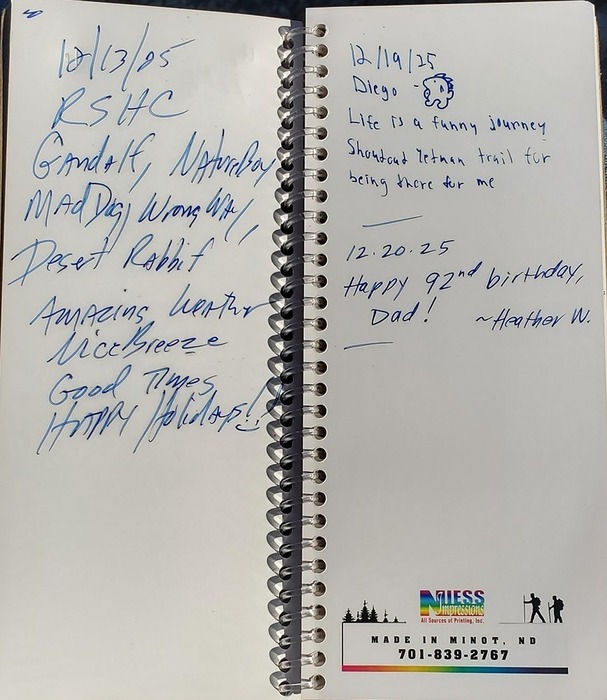 12/13/25
RSHC
Gandalf, NatureBoy
MadDog, Wrong Way,
Desert Rabbit
Amazing Weather
Nice Breeze
Good Times
Happy Holidays!!
12/19/25
Diego -
Life is a funny journey
Shoutout Yetman trail for
being there for me
12.20.25
Happy 92nd birthday,
Dad! ~Heather W.
NIESS
Impressions
All Sources of Printing, Inc.
MADE IN MINOT, ND
701-839-2767